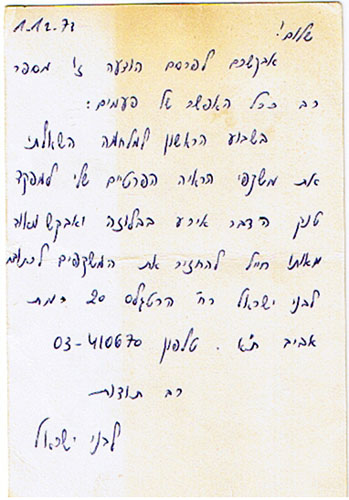 1.12.73
שלום!
אבקשכם לפרסם הודעה זו מספר
רב ככל האפשר של פעמים:
בשבוע הראשון למלחמה השאלתי
את משקפי הראיה הפרטיים שלי למפקד
טנק הדבר אירע בבלוזה ואבקש מאוד
מאותו חייל להחזיר את המשקפים לכתובת
לבני ישראל רח' הרטגלס 20 רמת
אביב ת"א. טלפון 03-410670
רב תודות
לבני ישראל